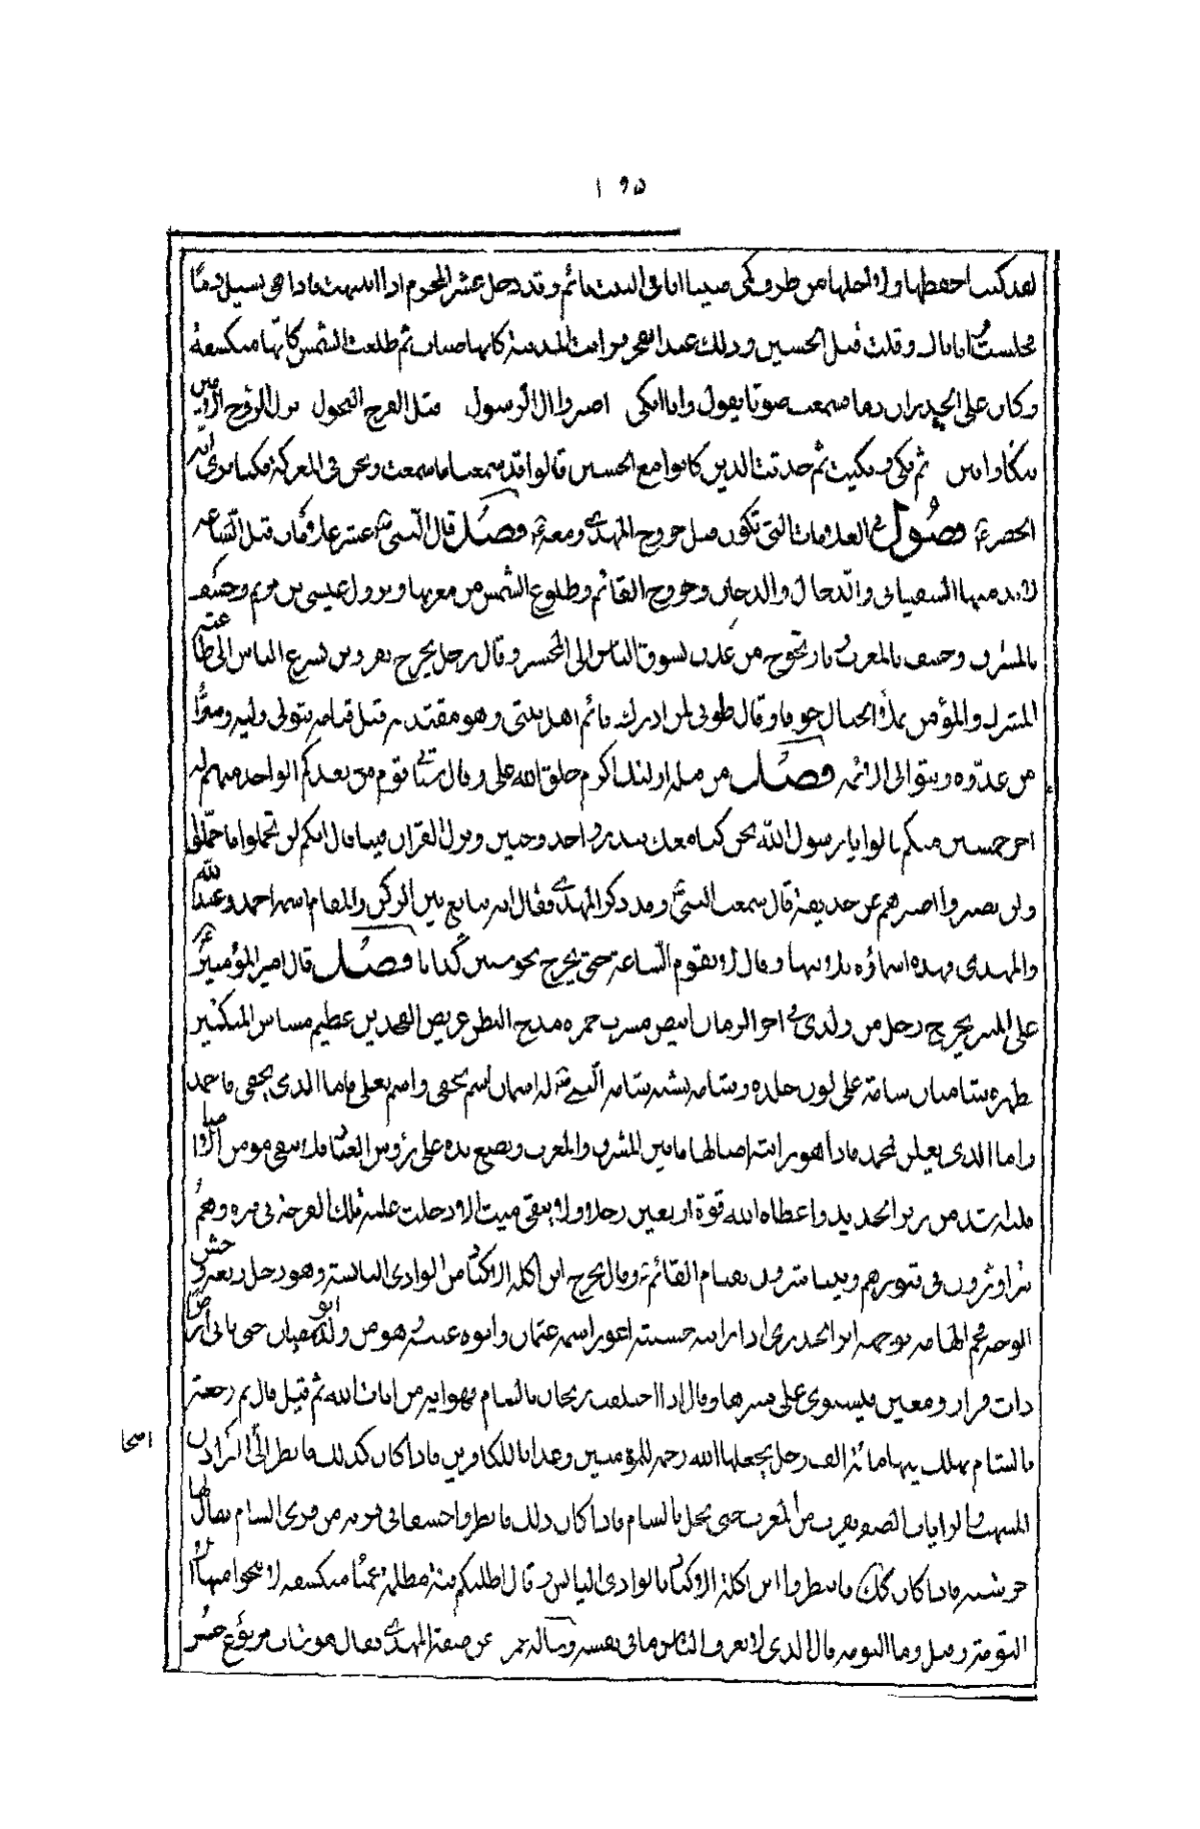 ١٩٥
لقد كنت احفظها ولا احلها من طرف كمى فبينا انا فى البيت نائم وقد دخل عشر المحرم اذا انتبهت فاذا هى تسيل دما
فجلست انا باك وقلت قتل الحسين وذلك عند الفجر فرايت المدينة كانها ضباب ثم طلعت الشمس كانها منكسفة
وكان على الجيدران دما فسمعت صوتا يقول وانا ابكى اصبروا ال الرسول قتل الفرخ النحول نزل الروح الامين
ببكاء وانين ثم بكى وبكيت ثم حدثت الذين كانوا مع الحسين قالوا قد سمعنا ما سمعت ونحن فى المعركة فكنا نرى انه
الخضر فصول فى العلامات التى تكون قبل خروج المهدى ومعه فصل قال النبى عشر علامات قبل الساعة
لابد منها السفيانى والدجال والدخان وخروج القائم وطلوع الشمس من مغربها ونزول عيسى بن مريم وخسف
بالمشرق وخسف بالمغرب نار تخرج من عدن تسوق الناس الى المحشر وقال رجل يخرج بقزوين يسرع الناس الى طاعته
المشرك والمؤمن يملأ الجبال خوفا وقال طوبى لمن ادرك قائم اهل بيتى وهو مقتد به قبل قيامه يتولى وليه ويتبرأ
من عدوه ويتوالى الائمه فصل من قبله اولئك اكرم خلق الله على وقال سياتى قوم من بعدكم الواحد منهم له
اجر خمسين منكم قالوا يا رسول الله نحن كنا معك ببدر واحد وحنين ونزل القران فينا قال انكم لن تحملوا ما حملوا
ولن تصبروا صبرهم عن حذيفة قال سمعت النبى وقد ذكر المهدى فقال انه يبايع بين الركن والمقام اسمه احمد وعبد الله
والمهدى فهذه اسماؤه ثلاثتها وقال لا تقوم الساعة حتى يخرج نحو ستين كذابا فصل قال امير المؤمنين
على المنبر يخرج رجل من ولدى فى اخر الزمان ابيض مشرب حمرة مبدح البطن عريض الفخذين عظيم مشاش المنكبين
بظهره شامتان شامة على لون جلده وشامة شبه شامة النبى له اسمان اسم يخفى واسم يعلن فاما الذى يخفى فاحمد
واما الذى يعلن فمحمد فاذا هز رايته اضاء لها ما بين المشرق والمغرب ويضع يده على رؤس العباد فلا يبقى مؤمن الا
قلبه اشد من زبر الحديد واعطاه الله قوة اربعين رجلا ولا يبقى ميت الا دخلت عليه تلك الفرحة فى قبره وهم
يتزاورون فى قبورهم ويتباشرون بقيام القائم وقال يخرج ابن اكلة الاكباد من الوادى اليابس وهو رجل ربعة وحش
الوجه ضخم الهامة بوجهه اثر الجدرى اذا رايته حسبته اعور اسمه عثمان وابوه عنبسة وهو من ولد ابو سفيان حتى ياتى ارض
ذات قرار ومعين فيستوى على منبرها وقال اذا اختلف رمحان بالشام فهو اية من ايات الله ثم قيل قال ثم رجفة
بالشام يهلك فيها مائة الف رجل يجعلها الله رحمة للمؤمنين وعذابا للكافرين فاذا كان كذلك فانظر الى البراذين
اصحا
الشهب والرايات الصفر تقرب من المغرب حتى تحل بالشام فاذا كان ذلك فانظروا خسفا فى قرية من قرى الشام يقال لها
خرشنه فاذا كان كذلك فانتظروا ابن اكلة الاكباد بالوادى اليابس وقال اظلتكم فتنة مظلمة عمياء منكسفة لا ينجو منها الا
النومة قيل وما النومه قال الذى لا يعرف الناس ما فى نفسه وساله عمر عن صفة المهدى فقال هو شاب مربوع حسن